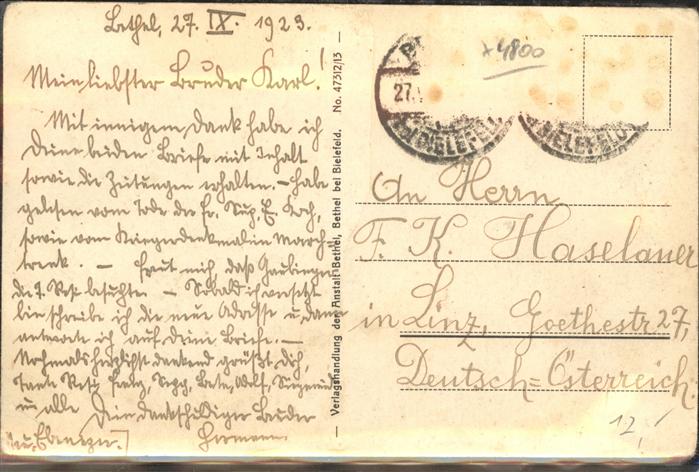 Bethel, 27. IX. 1923.
Mein liebster Bruder Karl!
Mit innigem Dank habe ich
Deine beiden Briefe mit Inhalt
sowie die Zeitungen erhalten. – Habe
gelesen vom Tode der Fr. E. Koch,
sowie vom Kriegerdenkmal in March-
trenk. – Freut mich, daß
die besuchten – Sobald ich versetzt
bin schreibe ich die neue Adresse u. dann
antworte ich auf Deine Briefe. –
Nochmals herzlichst dankend grüßt Dich,
Tante Resi, Franz,
u. alle Dein dankschuldiger Bruder
Hermann
Ebenezer.
Verlagshandlung der Anstalt Bethel, Bethel bei Bielefeld. No. 47312/13 —
x 4800
27.
BIELEFELD
BIELEFELD
An Herrn
F. K. Haselauer
in Linz, Goethestr 27,
Deutsch=Österreich.
12,-